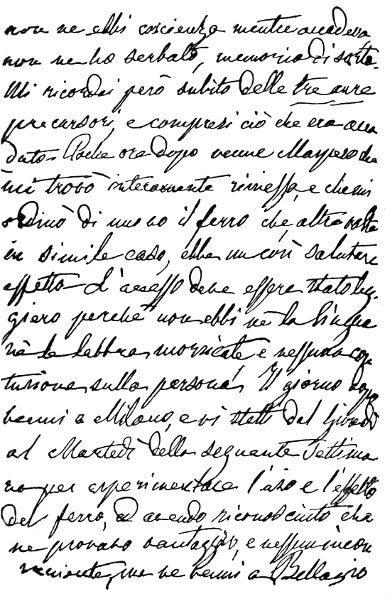 non ne ebbi coscienza mentre accadeva
non ne ho serbato memoria di sorta.
Mi ricordai però subito delle tre aure
precursori, e compresi ciò che era acca
duto. Poche ore dopo venne Manfreso che
mi trovò interamente rimesso, e che mi
ordinò di nuovo il ferro che, altra volta
in simile caso, ebbe un così salutare
effetto. L'accesso deve essere stato leg
giero perchè non ebbi nè la lingua
nè le labbra morsicate e nessuna con
tusione sulla persona. Il giorno dopo
venni a Milano, e vi stetti dal Giovedì
al Martedì della seguente settima
na per esperimentare l'uso e l'effetto
del ferro, ed avendo riconosciuto che
ne provavo vantaggio, e nessun incon
veniente, me ne venni a Bellagio